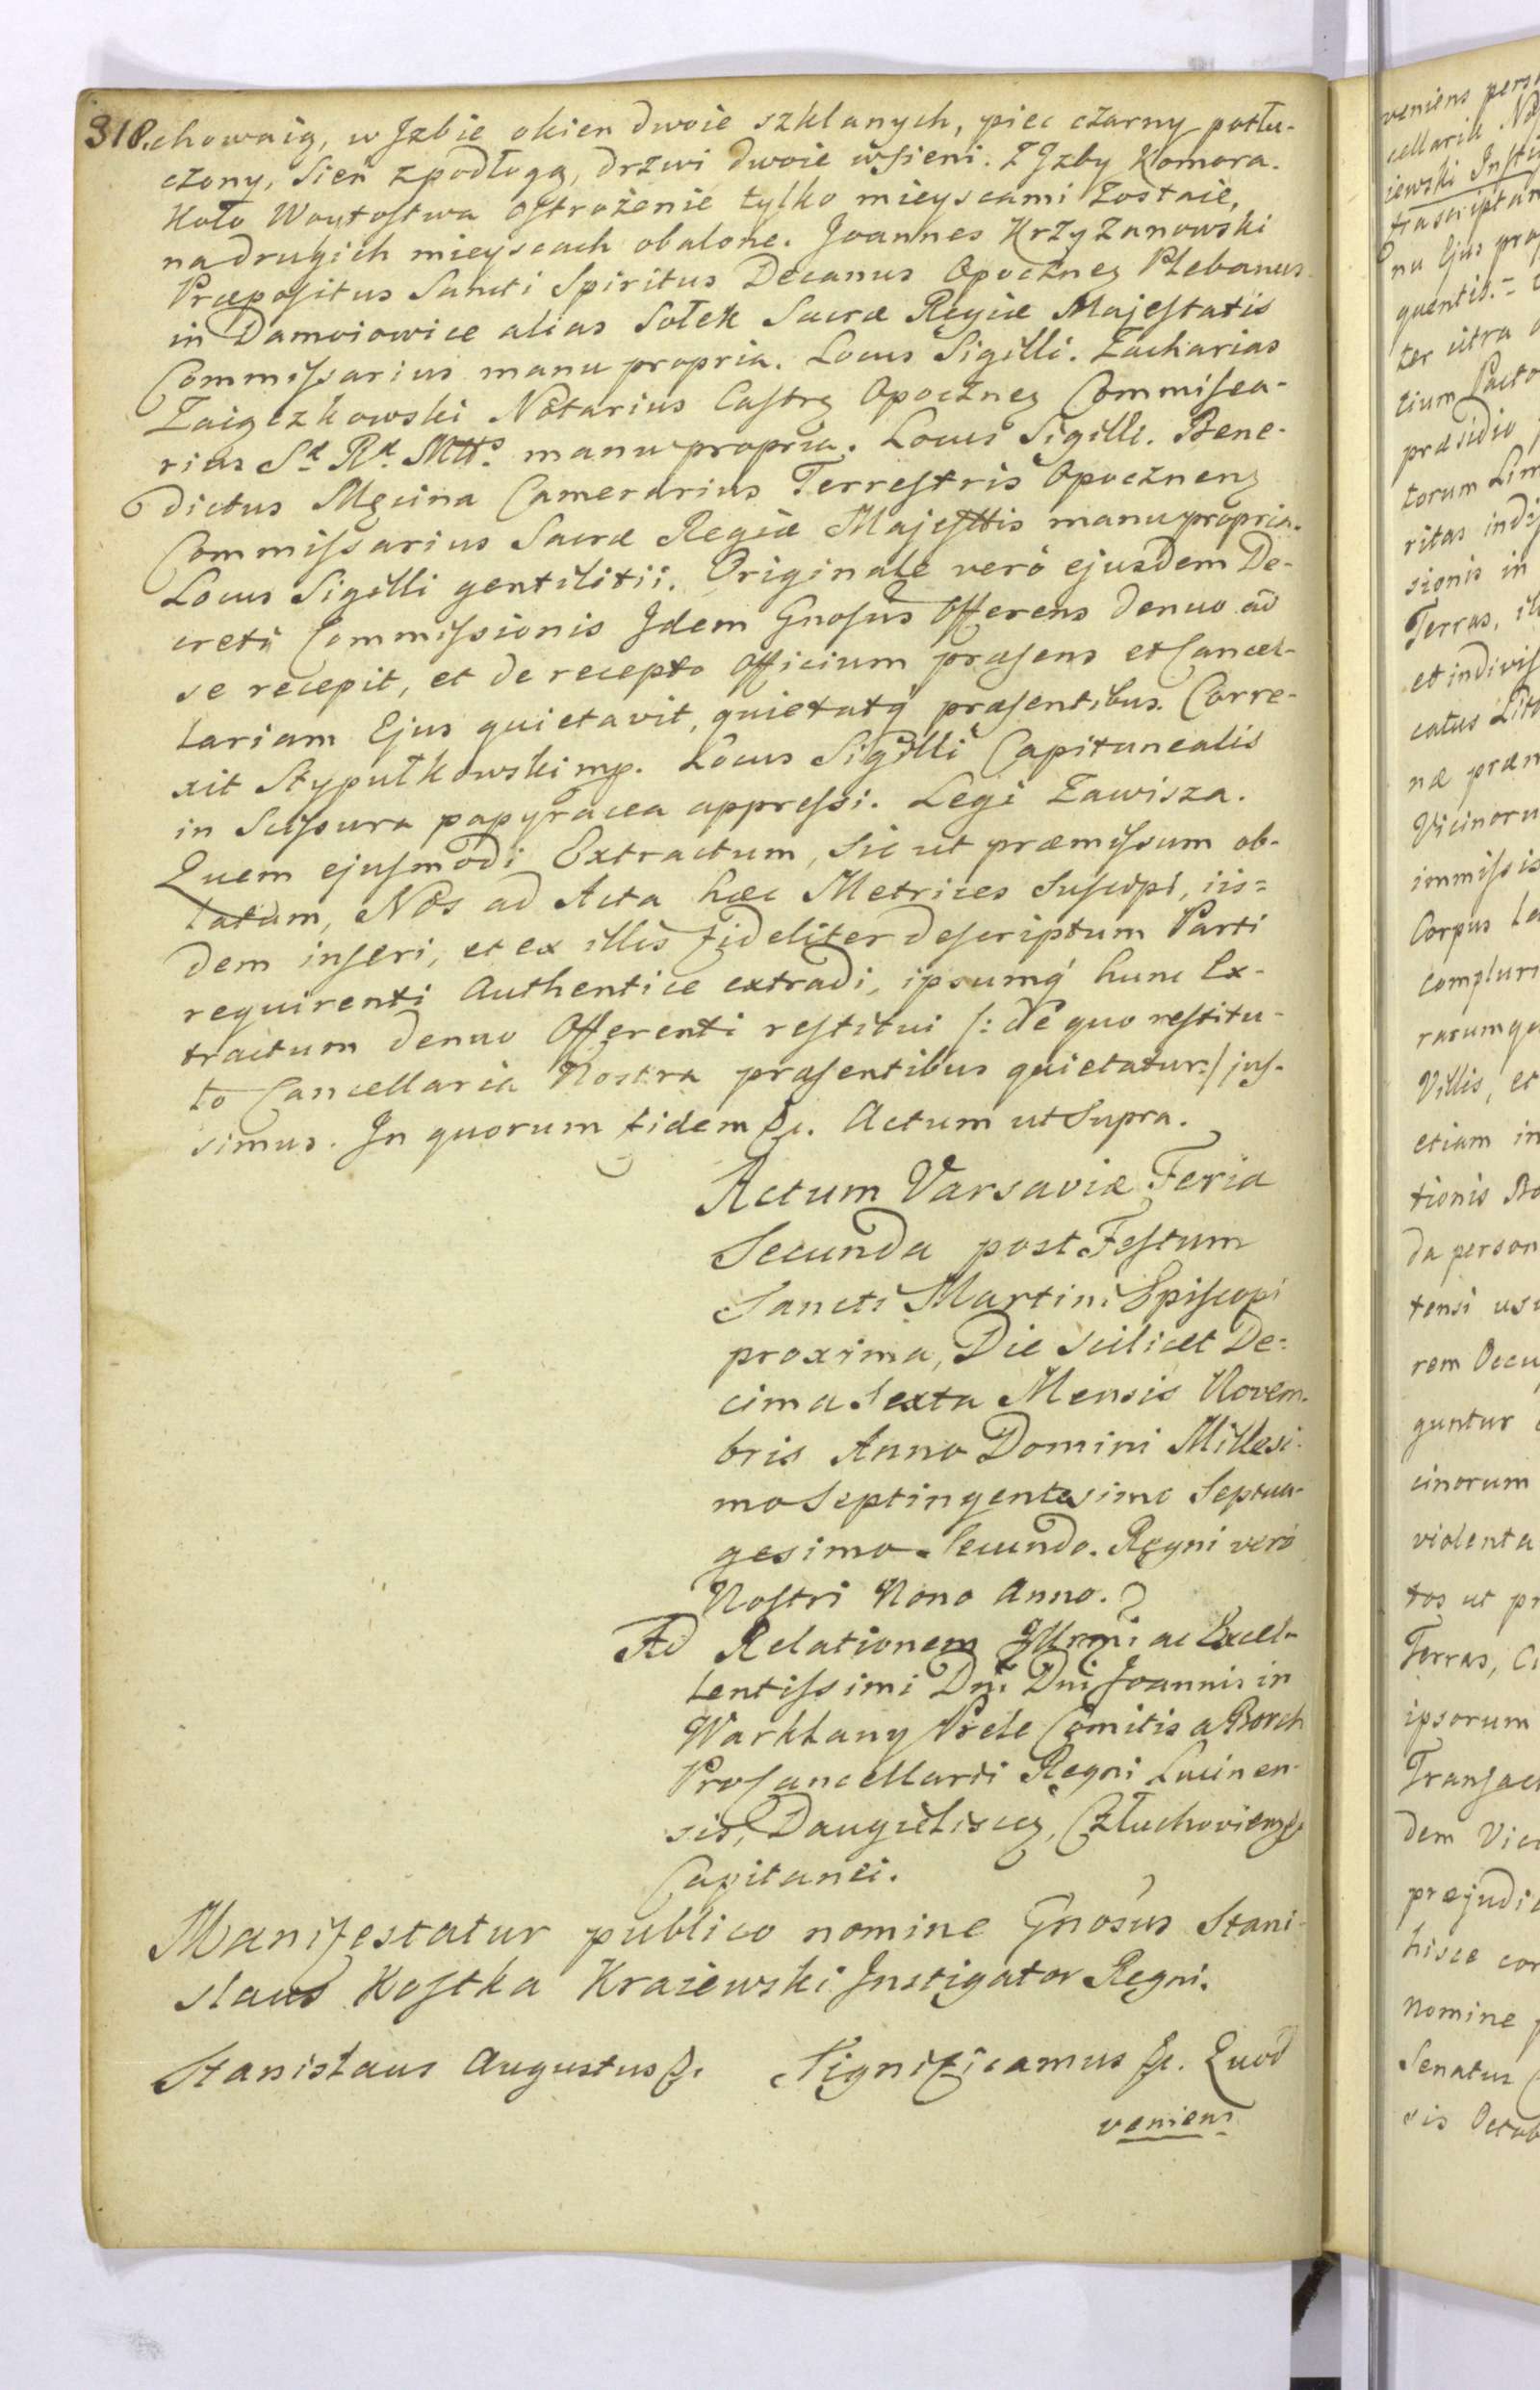 318. chowaią, w Jzbie okien dwoie szklanych, piec czarny potłu-
czony, Sień zpodłogą, drzwi dwoie wsieni. Z Jzby Komora.
Koło Woytostwa Ostrożenie tylko mieyscami zostaie,
nadrugich mieyscach obalone. Joannes Krzyzanowski
Præpositus Sancti Spiritus Decanus Opocznen Plebanus
in Damoiowice alias Sołek Sacræ Regiæ Majestatis
Commissarius manu propria. Locus Sigilli. Zacharias
Zaiączkowski Notarius Castren Opocznen Commissa-
rius Sæ Ræ Mttis manu propria. Locus Sigilli. Bene-
dictus Męcina Camerarius Terrestris Opocznens
Commissarius Sacræ Regiæ Majesttis manu propria.
Locus Sigilli gentilitii. Originale verò ejusdem De-
creti Commissionis Jdem Gnosus Offerens denuo ad
se recepit, et de recepto Officium præsens et Cancel-
lariam Ejus quietavit, quietatq præsentibus. Corre-
xit Stypułkowski mp. Locus Sigilli Capitanealis
in Scissura papyracea appressi. Legi Zawisza.
Quem ejusmodi Extractum, Sic ut præmissum ob-
latum, Nos ad Acta hæc Metrices Suscipi, iis=
dem inseri, et ex illis fideliter descriptum Parti
requirenti Authentice extradi, ipsumq hunc Ex-
tractum denuo Offerenti restitui /: de quo restitu-
to Cancellaria Nostra præsentibus quietatur :/ jus-
simus. In quorum fidem &c. Actum ut Supra.
Actum Varsaviæ Feria
Secunda post Festum
Sancti Martini Episcopi
proxima, Die scilicet De=
cima Sexta Mensis Novem-
bris Anno Domini Millesi-
mo Septingentesimo Septua-
gesimo Secundo. Regni verò
Nostri Nono Anno.
Ad Relationem Jllrmi ac Excel-
lentissimi Dni Dni Joannis in
Warklany Prele Comitis a Borch
ProCancellarii Regni Lucinen-
sis, Daugieliscen, Człuchoviensis
Capitanei.
Manifestatur publico nomine Gnosus Stani-
slaus Kostka Kraiewski Jnstigator Regni.
Stanislaus Augustus &. Significamus &c. Quod
veniens